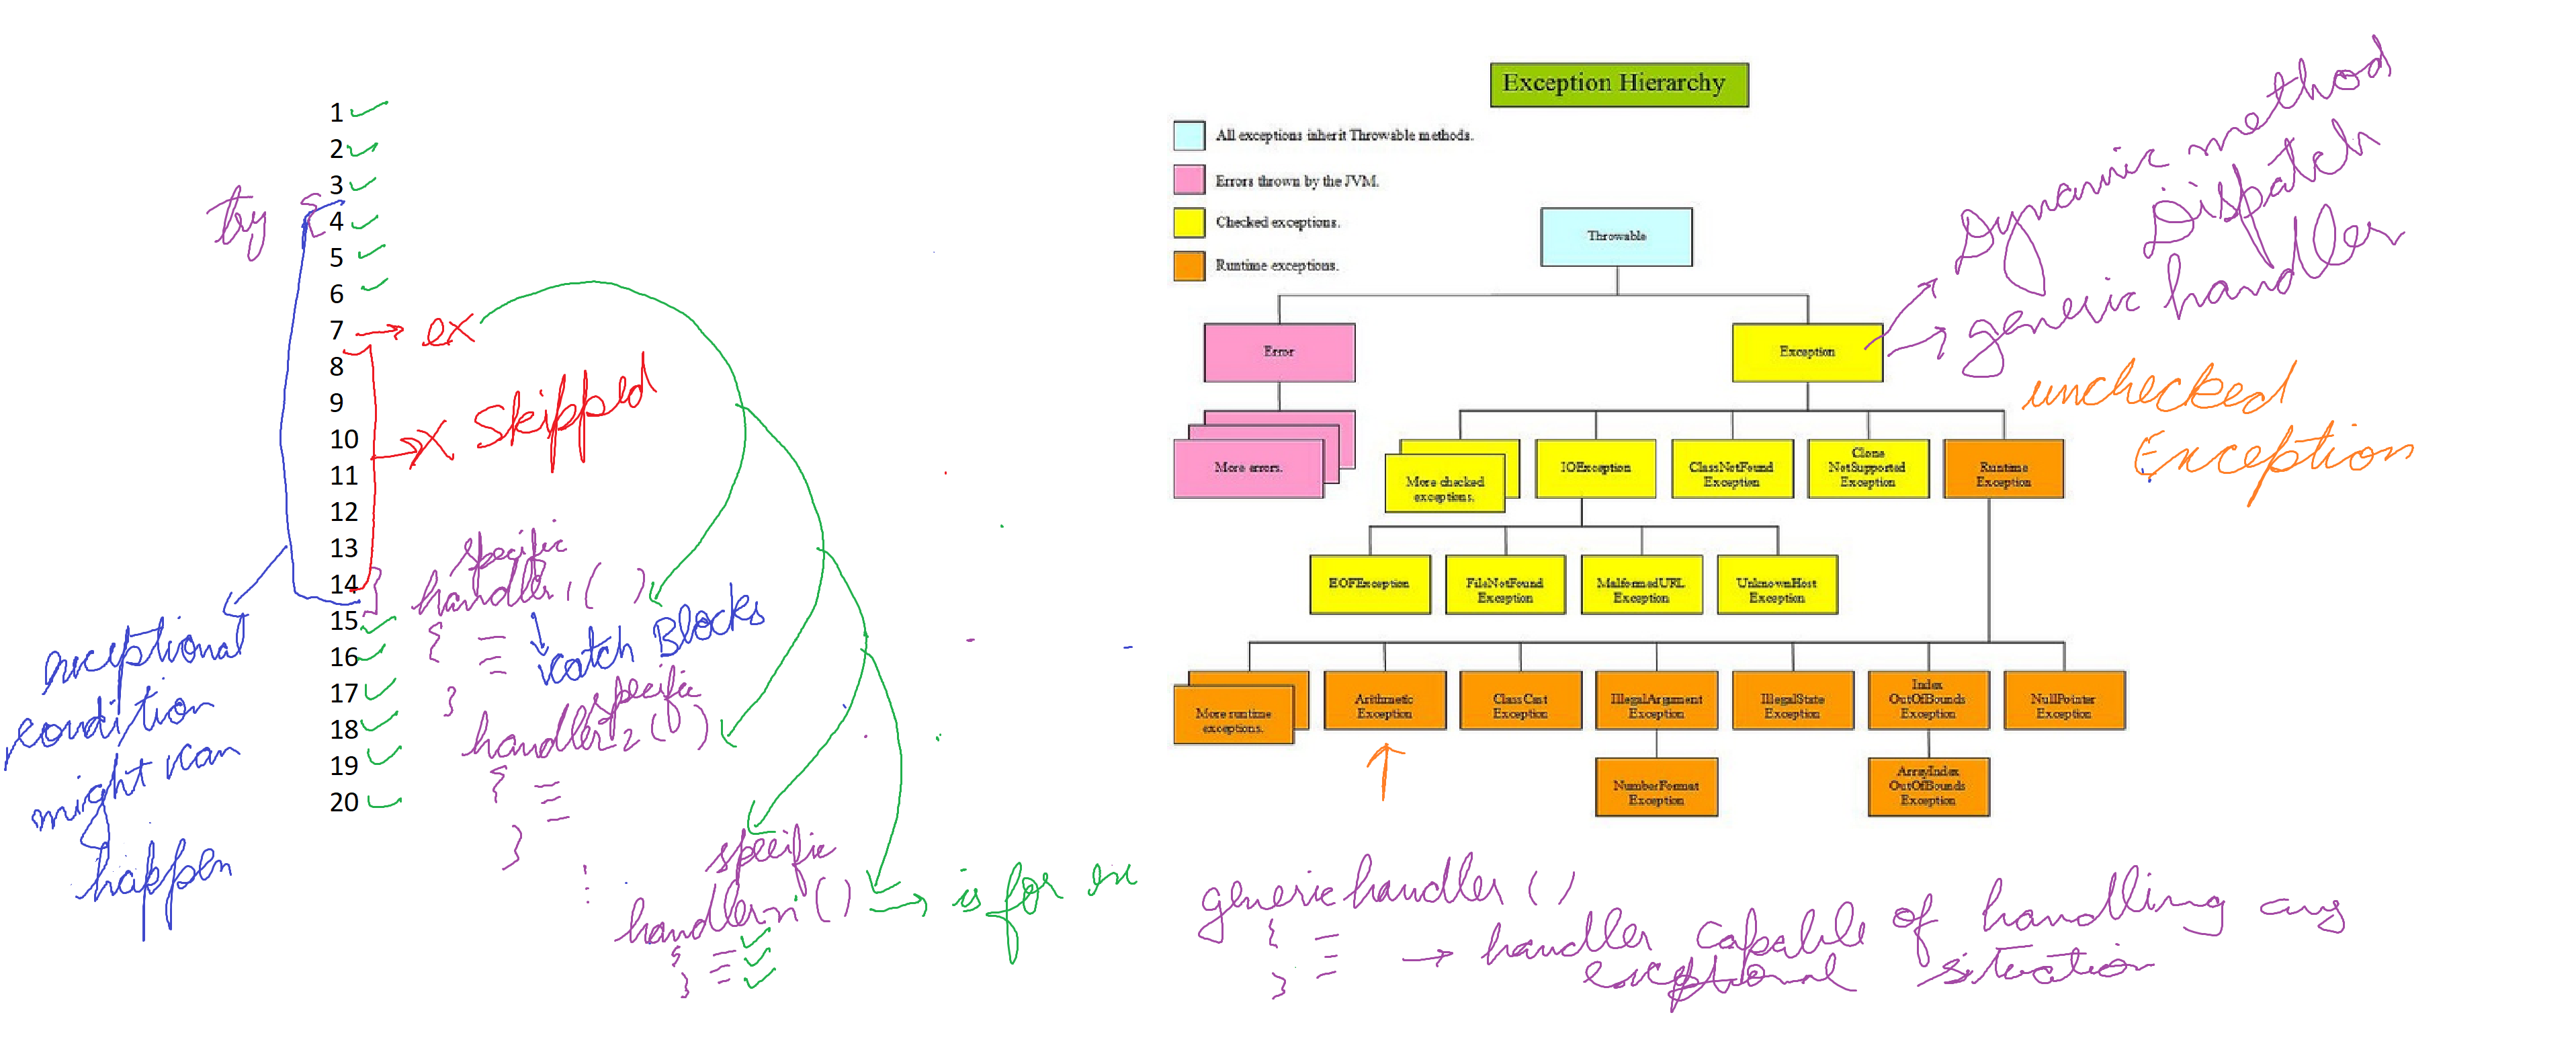 1
2
3
try {
4
5
6
7 → ex
8
9
10
→ X Skipped
11
12
13
14 }
15
16
17
18
19
20
exceptional
condition
might can
happen
specific
handler1 ( )
{
}
catch Blocks
specific
handler2 ( )
{
}
specific
handlern ( ) → is for ex
{
}
Exception Hierarchy
All exceptions inherit Throwable methods.
Errors thrown by the JVM.
Checked exceptions.
Runtime exceptions.
Throwable
Error
Exception
Dynamic method
Dispatch
generic handler
unchecked
Exception
More errors.
More checked
exceptions.
IOException
ClassNotFound
Exception
Clone
NotSupported
Exception
Runtime
Exception
EOFException
FileNotFound
Exception
MalformedURL
Exception
UnknownHost
Exception
More runtime
exceptions.
Arithmetic
Exception
ClassCast
Exception
IllegalArgument
Exception
IllegalState
Exception
Index
OutOfBounds
Exception
NullPointer
Exception
NumberFormat
Exception
ArrayIndex
OutOfBounds
Exception
generic handler ( )
{
}
→ handler capable of handling any
exceptional situation